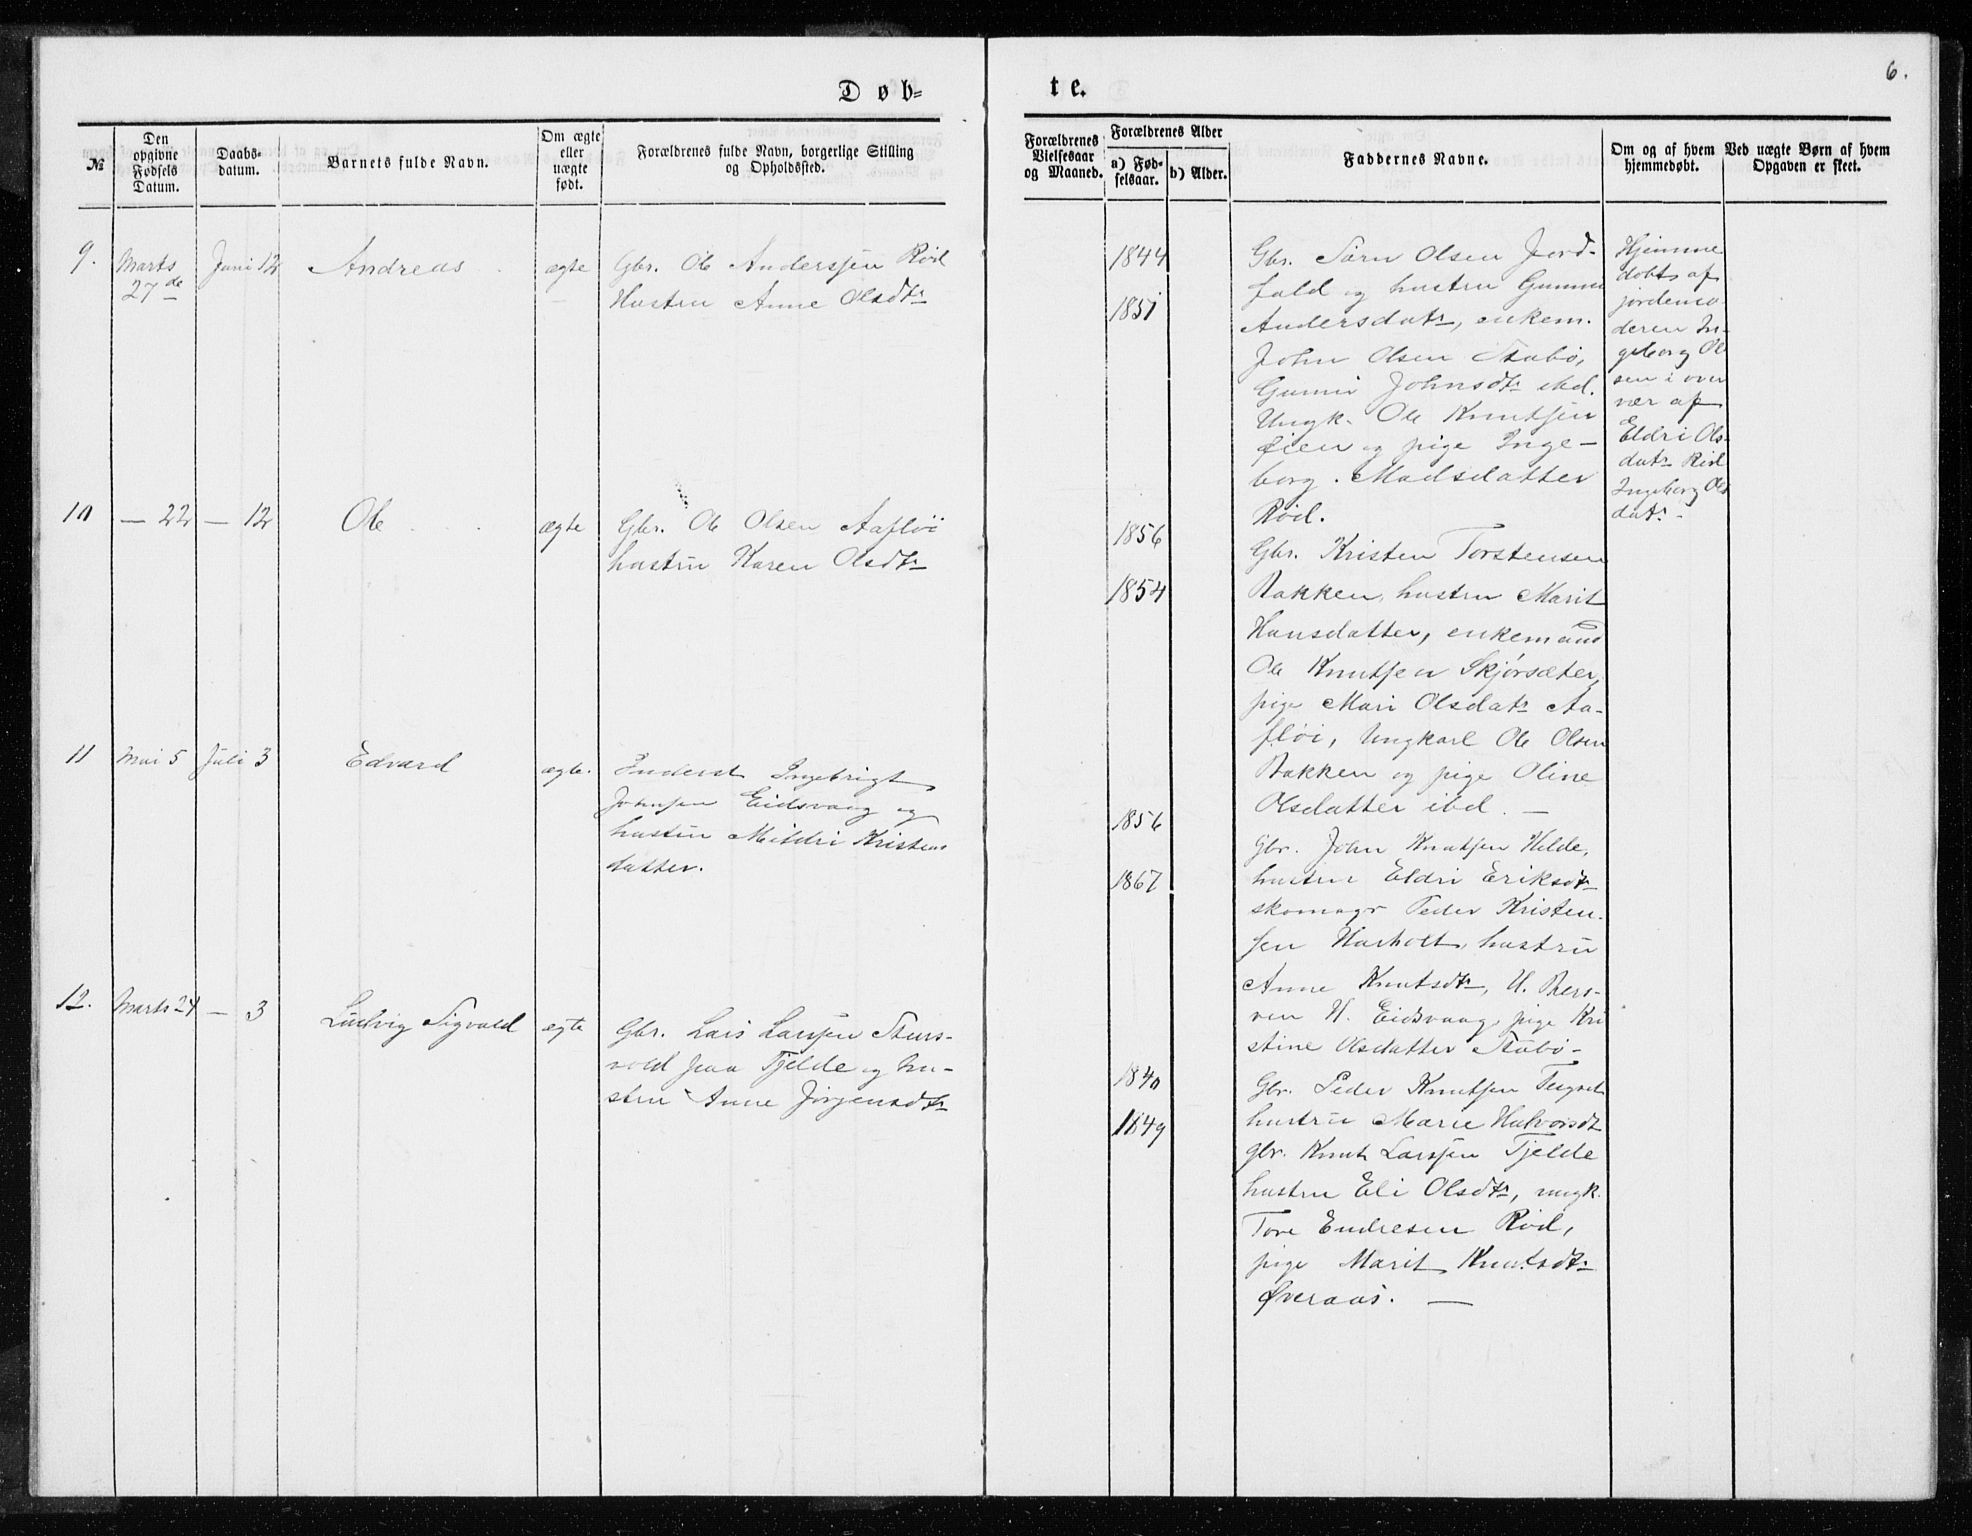 6.
Døb=
te.
№
Den opgivne Fødsels Datum.
Daabs-datum.
Barnets fulde Navn.
Om ægte eller uægte født.
Forældrenes fulde Navn, borgerlige Stilling og Opholdssted.
Forældrenes Vielsesaar og Maaned.
Forældrenes Alder
a) Fødselsaar.
b) Alder.
Faddernes Navne.
Om og af hvem hjemmedøbt.
Ved uægte Børn af hvem Opgaven er skeet.
9.
Marts
27de
Juni 12
Andreas
ægte
Gbr. Ole Anderssen Rød
Hustru Anne Olsdtr
1844
1851
Gbr. Sørn Olsen Jord-
fald og hustru Gunni
Andersdatr, enkem.
John Olsen Stabø,
Gunni Johnsdtr ibd.
Ungk. Ole Knutsen
Øien og pige Inge-
borg Madsdatter
Rød.
Hjemme
døbt af
jordemo
deren In-
geborg Ol
sen i over
vær af
Eldri Ols-
datr Rød
Ingeborg Ols
datr -
10
— 22
— 12
Ole
ægte
Gbr. Ole Olsen Aafløi
hustru Karen Olsdtr
1856
1854
Gbr. Kristen Torstensen
Bakken, hustru Marit
Hansdatter, enkemand
Ole Knutsen Skjørsæter,
pige Mari Olsdatr Aa-
fløi, Ungkarl Ole Olsen
Bakken og pige Oline
Olsdatter ibd. —
11
Mai 5
Juli 3
Edvard
ægte.
Inderst Ingebrigt
Johnsen Eidsvaag og
hustru Mildri Kristens
datter.
1856
1867
Gbr. John Knutsen Hilde,
hustru Eldri Eriksdtr
skomagr Peder Kristen-
sen Harholt, hustru
Anne Knutsdtr, U. Bers-
ven H. Eidsvaag, pige Kri
stine Olsdatter Stabø -
12.
Marts 24
— 3
Ludvig Sigvald
ægte
Gbr. Lars Larssen
vold paa Tjelde og hu-
stru Anne Jørgensdtr
1840
1849
Gbr. Peder Knutsen
hustru Marie Halvorsdt
gbr. Knut Larssen Tjelde
hustru Eli Olsdtr, ungk.
Tore Endresen Rød,
pige Marit Knutsdtr
Øveraas. —